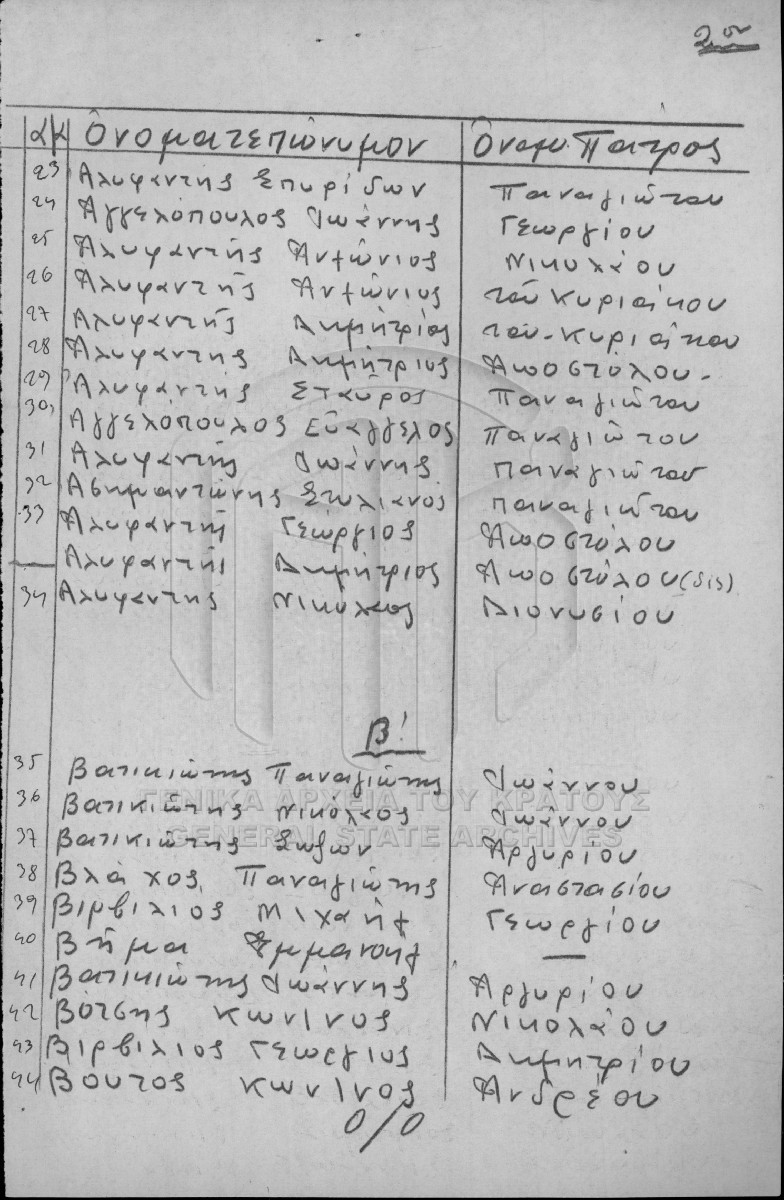 2ον
α/α Ὀνοματεπώνυμον Ὀνομ. Πατρος
23 Αλυφαντής Σπυρίδων Παναγιῶτου
24 Αγγελόπουλος Ἰωάννης Γεωργίου
25 Αλυφαντής Αντώνιος Νικολάου
26 Αλυφαντῆς Αντώνιος τοῦ Κυριάκου
27 Αλυφαντῆς Δημήτριος τοῦ Κυριάκου
28 Αλυφαντης Δημήτριος Αποστόλου
29 Αλυφαντής Σταῦρος Παναγιῶτου
30 Αγγελόπουλος Εὐάγγελος Παναγιῶτου
31 Αλυφαντῆς Ἰωάννης Παναγιῶτου
32 Ασημαντώνης Στυλιανός Παναγιῶτου
33 Αλυφαντῆς Γεώργιος Αποστόλου
— Αλυφαντῆς Δημήτριος Αποστόλου (dis)
34 Αλυφαντης Νικόλαος Διονυσίου
Β!
35 Βατικιώτης Παναγιώτης Ἰωάννου
36 Βατικιώτης Νικολαος Ἰωάννου
ΓΕΝΙΚΑ ΑΡΧΕΙΑ ΤΟΥ ΚΡΑΤΟΥΣ
37 Βατικιώτης Σωζων Αργυρίου
GENERAL STATE ARCHIVES
38 Βλάχος Παναγιώτης Αναστασίου
39 Βιρβιλιος Μιχαήλ Γεωργίου
40 Βῆμα Ἐμμανουήλ —
41 Βατικιώτης Ἰωάννης Αργυρίου
42 Βότσης Κων/νος Νικολάου
43 Βιρβιλιος Γεωργιος Δημητρίου
44 Βουτος Κων/νος Ανδρέου
0/0